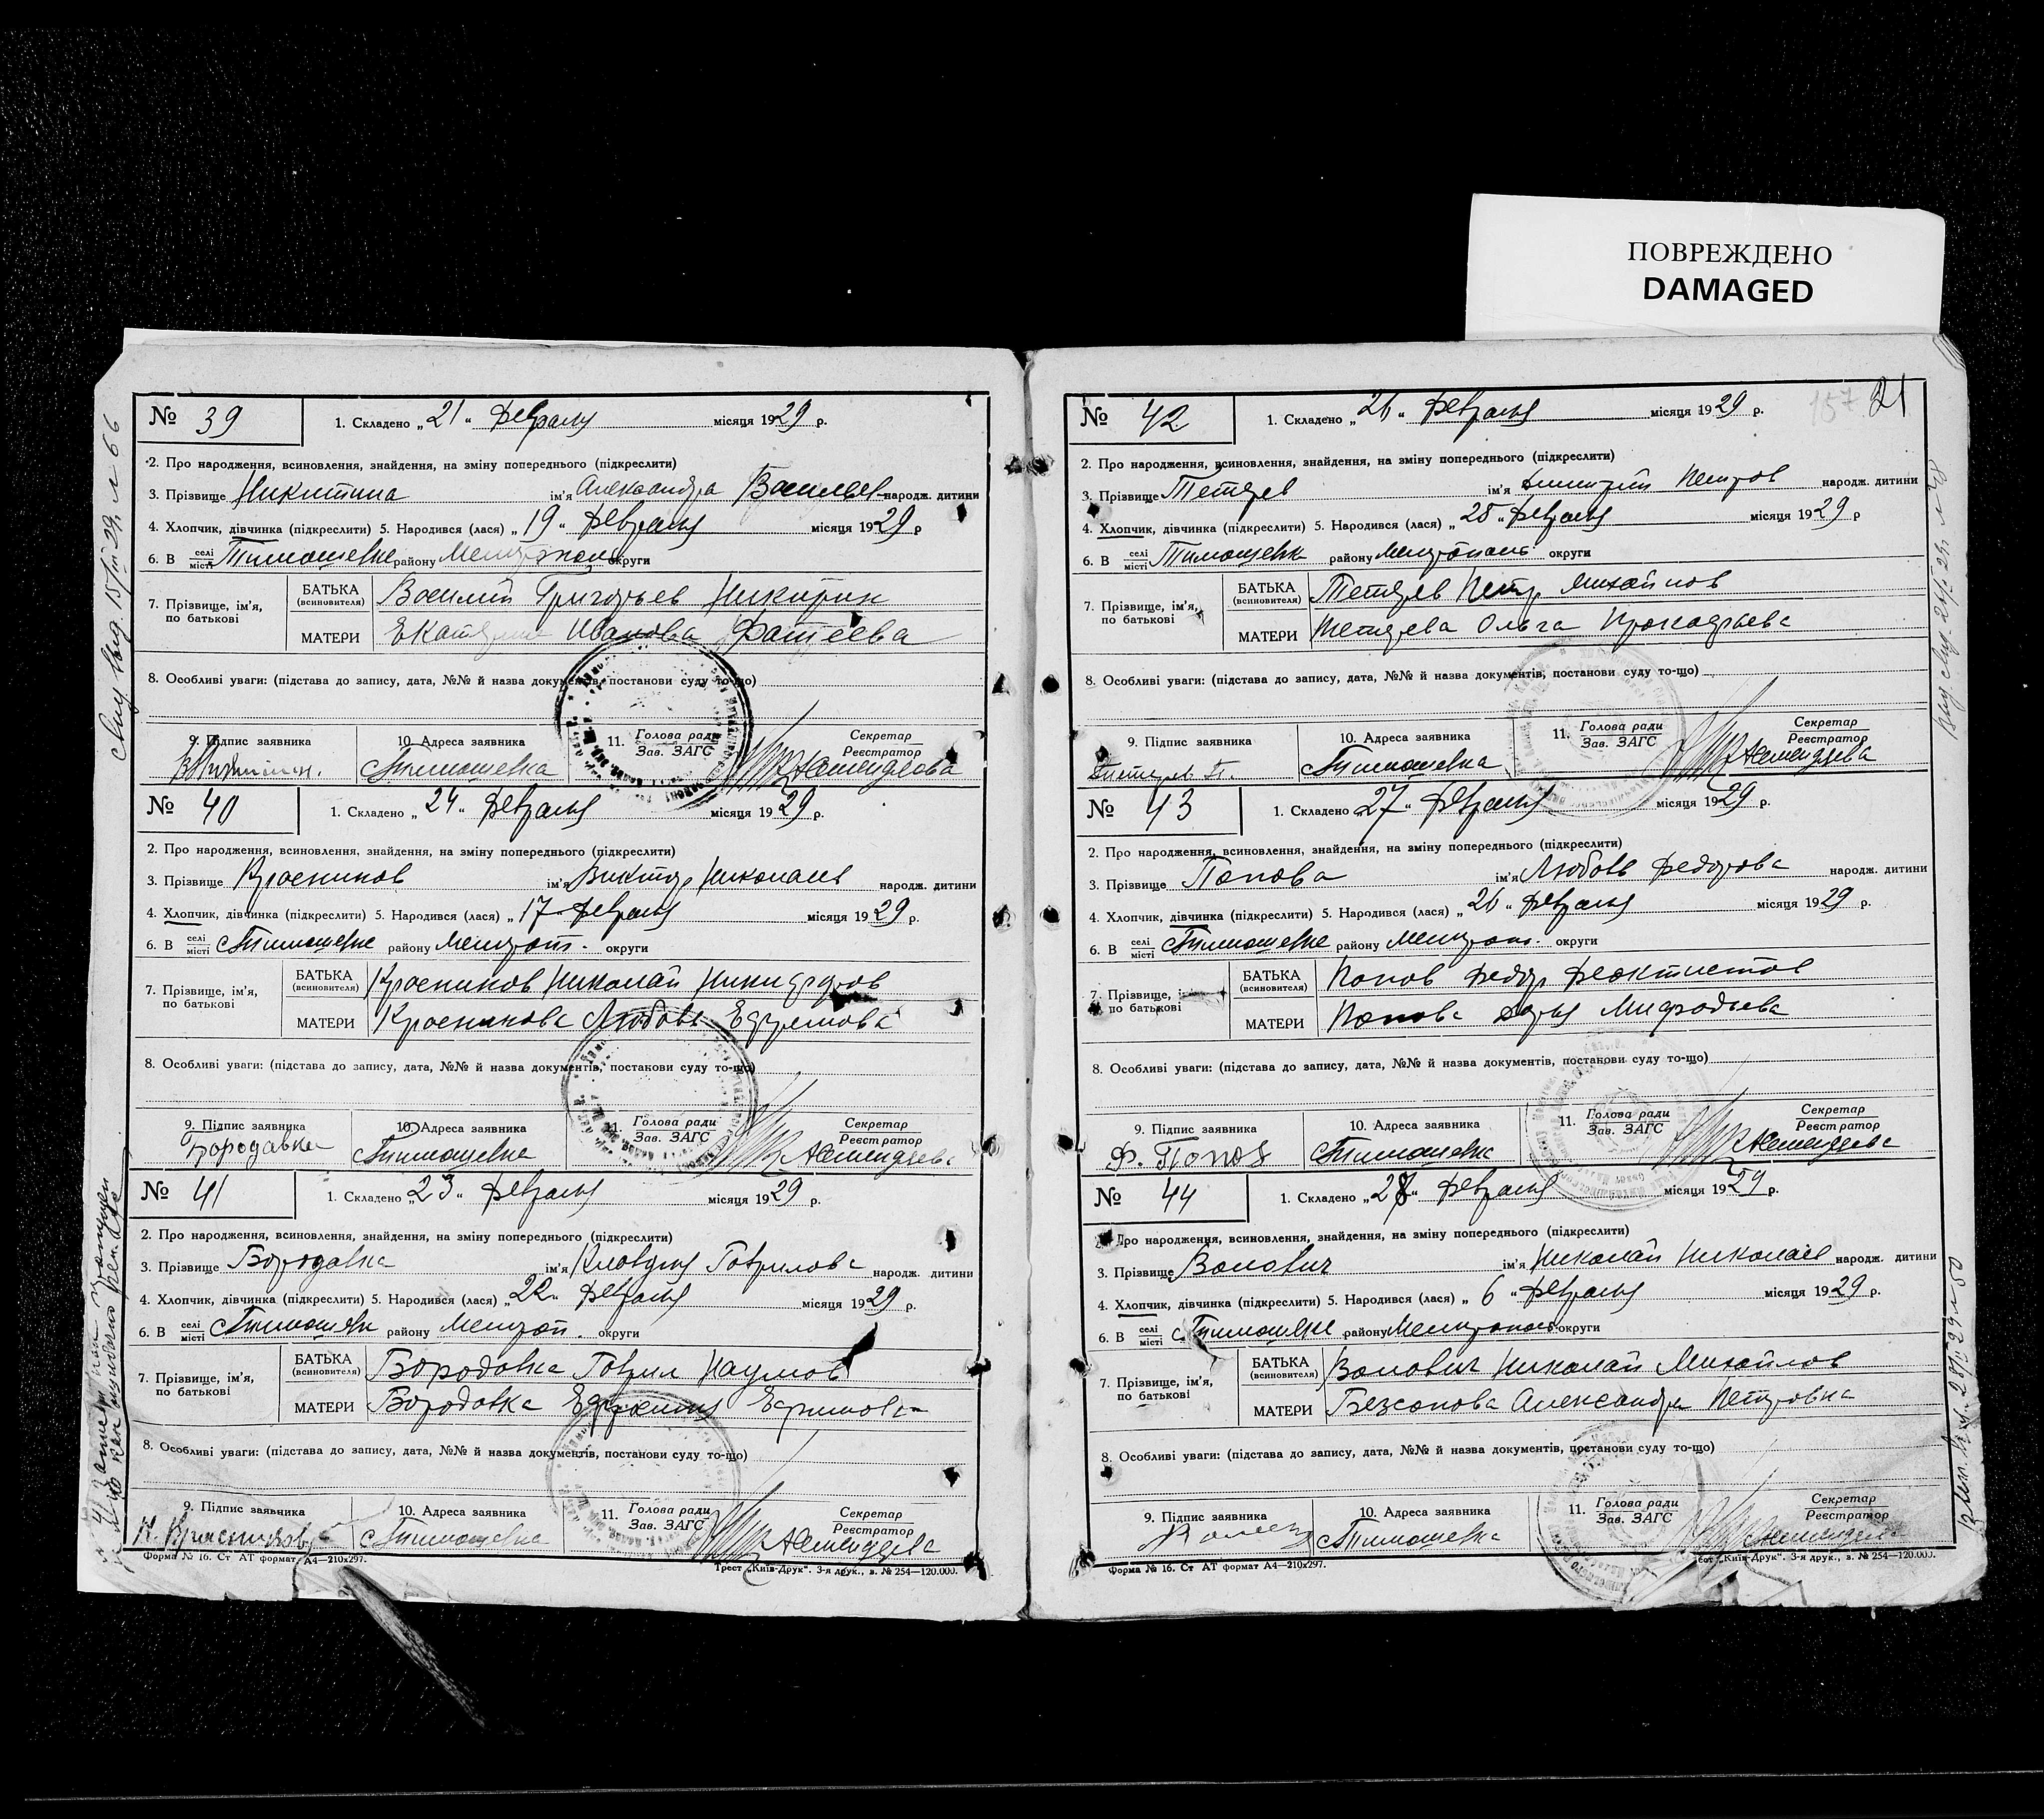 ПОВРЕЖДЕНО
DAMAGED
№ 39 1. Складено „21“ Февраля місяця 1929 р.
2. Про народження, всиновлення, знайдення, на зміну попереднього (підкреслити)
3. Прізвище Никитина ім'я Александра Васильев народж. дитини
4. Хлопчик, дівчинка (підкреслити) 5. Народився (лася) „19“ Февраля місяця 1929 р
6. В селі місті Тимошевке району округи
7. Прізвище, ім'я, по батькові
БАТЬКА (всиновителя) Василий Григорьев Никитин
МАТЕРИ Екатерина Иванова Фатеева
8. Особливі уваги: (підстава до запису, дата, №№ й назва документів, постанови суду то-що)
9. Підпис заявника 10. Адреса заявника 11. Голова ради Зав. ЗАГС Секретар Реєстратор
Тимошевка
№ 40 1. Складено „24“ Февраля місяця 1929 р.
2. Про народження, всиновлення, знайдення, на зміну попереднього (підкреслити)
3. Прізвище Красников ім'я Виктор Николаев народж. дитини
4. Хлопчик, дівчинка (підкреслити) 5. Народився (лася) „17“ Февраля місяця 1929 р.
6. В селі місті с Тимошевке району Мелитоп. округи
7. Прізвище, ім'я, по батькові
БАТЬКА (всиновителя) Красников Николай Никифоров
МАТЕРИ Красникова Любовь Ефремова
8. Особливі уваги: (підстава до запису, дата, №№ й назва документів, постанови суду то-що)
9. Підпис заявника 10. Адреса заявника 11. Голова ради Зав. ЗАГС Секретар Реєстратор
Бородавка с Тимошевка
№ 41 1. Складено „23“ Февраля місяця 1929 р.
2. Про народження, всиновлення, знайдення, на зміну попереднього (підкреслити)
3. Прізвище Бородавка ім'я Клавдия Гаврилова народж. дитини
4. Хлопчик, дівчинка (підкреслити) 5. Народився (лася) „22“ Февраля місяця 1929 р.
6. В селі місті с Тимошевке району Мелитоп. округи
7. Прізвище, ім'я, по батькові
БАТЬКА (всиновителя) Бородавка Гаврил Наумов
МАТЕРИ Бородавка Ефимовa
8. Особливі уваги: (підстава до запису, дата, №№ й назва документів, постанови суду то-що)
9. Підпис заявника 10. Адреса заявника 11. Голова ради Зав. ЗАГС Секретар Реєстратор
Н. Красников с Тимошевка
Форма № 16. Ст АТ формат А4—210х297. Трест „Київ-Друк“. 3-я друк., в. № 254—120.000.
21
№ 42 1. Складено „26“ Февраля місяця 1929 р.
2. Про народження, всиновлення, знайдення, на зміну попереднього (підкреслити)
3. Прізвище Тетерев ім'я Димитрий Петров народж. дитини
4. Хлопчик, дівчинка (підкреслити) 5. Народився (лася) „25“ Февраля місяця 1929 р
6. В селі місті Тимошевк району округи
7. Прізвище, ім'я, по батькові
БАТЬКА (всиновителя) Тетерев Петр Михайлов
МАТЕРИ Тетерева Ольга
8. Особливі уваги: (підстава до запису, дата, №№ й назва документів, постанови суду то-що)
9. Підпис заявника 10. Адреса заявника 11. Голова ради Зав. ЗАГС Секретар Реєстратор
Тетерев П. с Тимошевка
№ 43 1. Складено „27“ Февраля місяця 1929 р.
2. Про народження, всиновлення, знайдення, на зміну попереднього (підкреслити)
3. Прізвище Попова ім'я Любовь Федорова народж. дитини
4. Хлопчик, дівчинка (підкреслити) 5. Народився (лася) „26“ Февраля місяця 1929 р.
6. В селі місті с Тимошевке району Мелитоп. округи
7. Прізвище, ім'я, по батькові
БАТЬКА (всиновителя) Попов Федор Феоктистов
МАТЕРИ Попова Дарья Мифодьева
8. Особливі уваги: (підстава до запису, дата, №№ й назва документів, постанови суду то-що)
9. Підпис заявника 10. Адреса заявника 11. Голова ради Зав. ЗАГС Секретар Реєстратор
Ф. Попов с Тимошевк
№ 44 1. Складено „28“ Февраля місяця 1929 р.
2. Про народження, всиновлення, знайдення, на зміну попереднього (підкреслити)
3. Прізвище Волович ім'я Николай Николаев народж. дитини
4. Хлопчик, дівчинка (підкреслити) 5. Народився (лася) „6“ Февраля місяця 1929 р.
6. В селі місті с Тимошевке району округи
7. Прізвище, ім'я, по батькові
БАТЬКА (всиновителя) Волович Николай Михайлов
МАТЕРИ Безсонова Александра Петровна
8. Особливі уваги: (підстава до запису, дата, №№ й назва документів, постанови суду то-що)
9. Підпис заявника 10. Адреса заявника 11. Голова ради Зав. ЗАГС Секретар Реєстратор
с Тимошевка
Форма № 16. Ст АТ формат А4—210х297. „Київ-Друк“. 3-я друк., в. № 254—120.000.